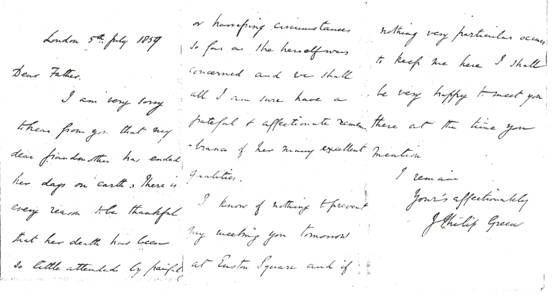 London 5th July 1859
Dear Father.
I am very sorry
to hear from you that my
dear Grandmother has ended
her days on earth; There is
every reason to be thankful
that her death has been
so little attended by painful
or harassing circumstances
so far as she herself was
concerned and we shall
all I am sure have a
grateful & affectionate remem
-brance of her many excellent
qualities.
I know of nothing to prevent
my meeting you tomorrow
at Euston Square and if
nothing very particular occurs
to keep me here I shall
be very happy to meet you
there at the time you
mention
I remain
Your's affectionately
J Philip Green